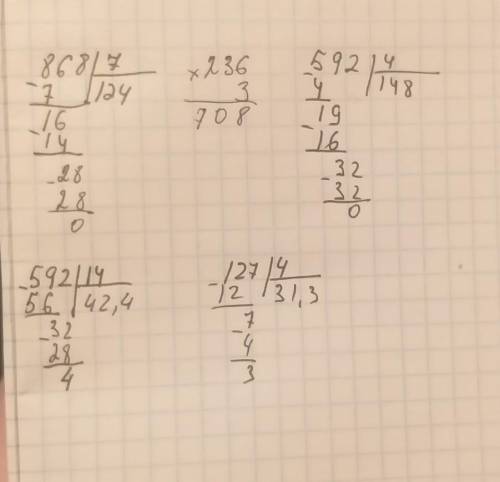 868 7
- 7 124
16
- 14
- 28
28
0
× 236
3
708
- 592 4
4 148
19
- 16
- 32
32
0
- 592 14
56 42,4
- 32
28
4
- 127 4
12 31,3
- 7
4
3